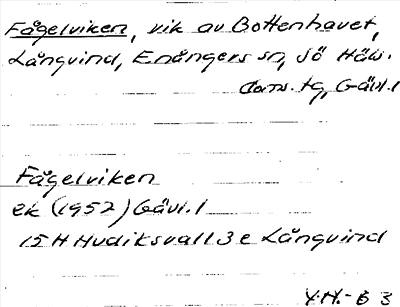 Fågelviken, vik av Bottenhavet,
Långvind, Enångers sn, Sö Häls.
doms. tg, Gävl. l
Fågelviken
ek (1952) Gävl. l
15 H Hudiksvall 3 e Långvind
Y.H.-63